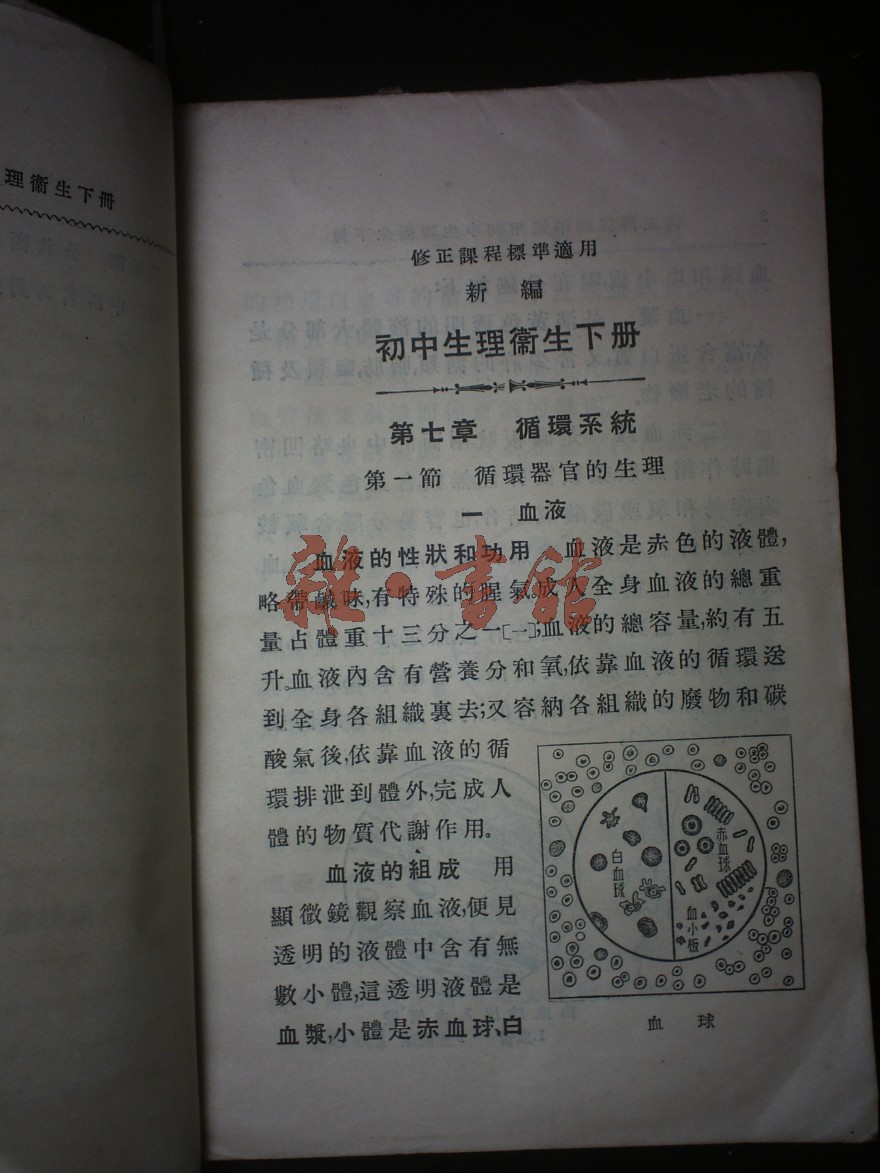 理衞生下冊
修正課程標準適用
新編
初中生理衞生下册
第七章 循環系統
第一節 循環器官的生理
一 血液
血液的性狀和功用 血液是赤色的液體,
略帶鹹味,有特殊的腥氣。成人全身血液的總重
量占體重十三分之一[一];血液的總容量,約有五
升。血液內含有營養分和氧,依靠血液的循環送
到全身各組織裏去;又容納各組織的廢物和碳
酸氣後,依靠血液的循
環排泄到體外,完成人
體的物質代謝作用。
血液的組成 用
顯微鏡觀察血液,便見
透明的液體中含有無
數小體,這透明液體是
血漿,小體是赤血球、白
白血球
赤血球
血小板
血球
雜·書館